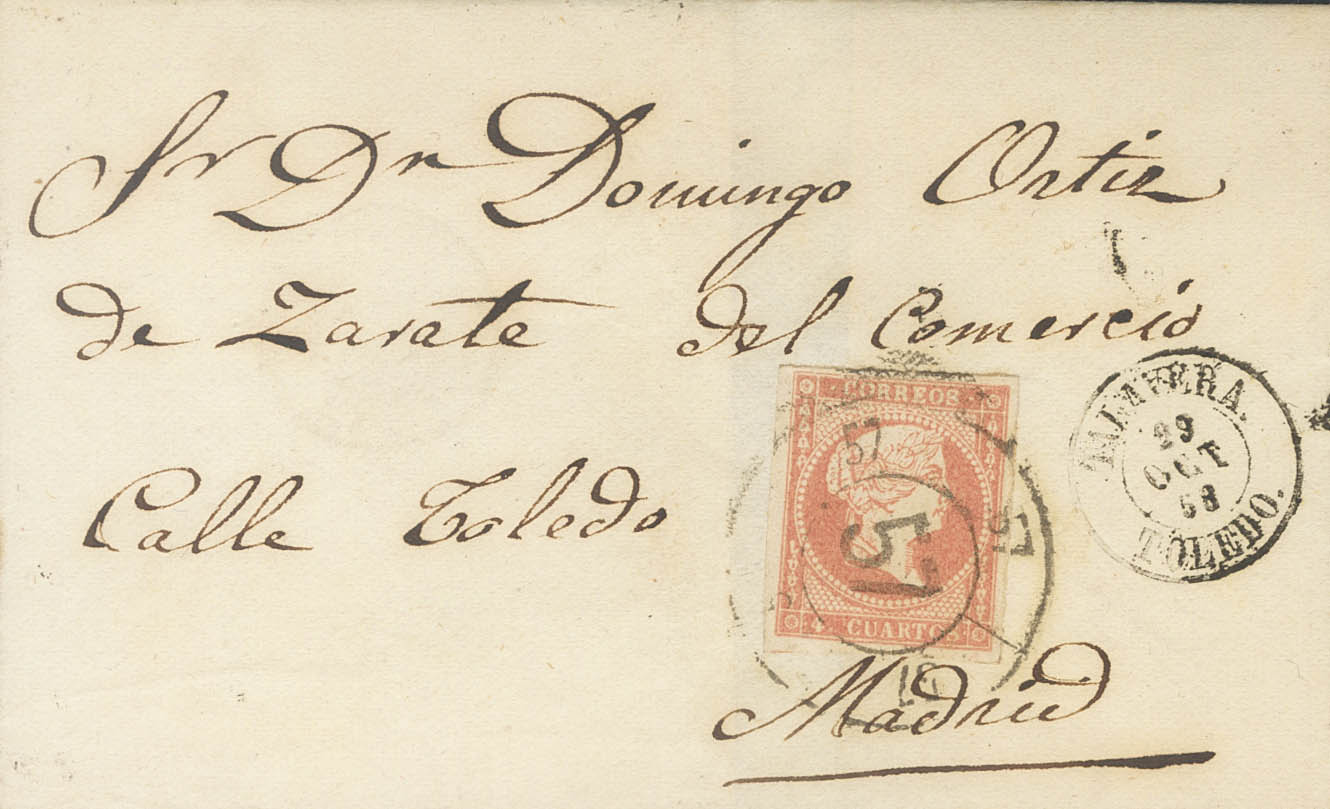 Sr Dn Domingo Ortiz
de Zarate del Comercio
Calle Toledo
CORREOS
57
57
57
4 CUARTOS
TALAVERA.
29
OCT
58
TOLEDO.
Madrid